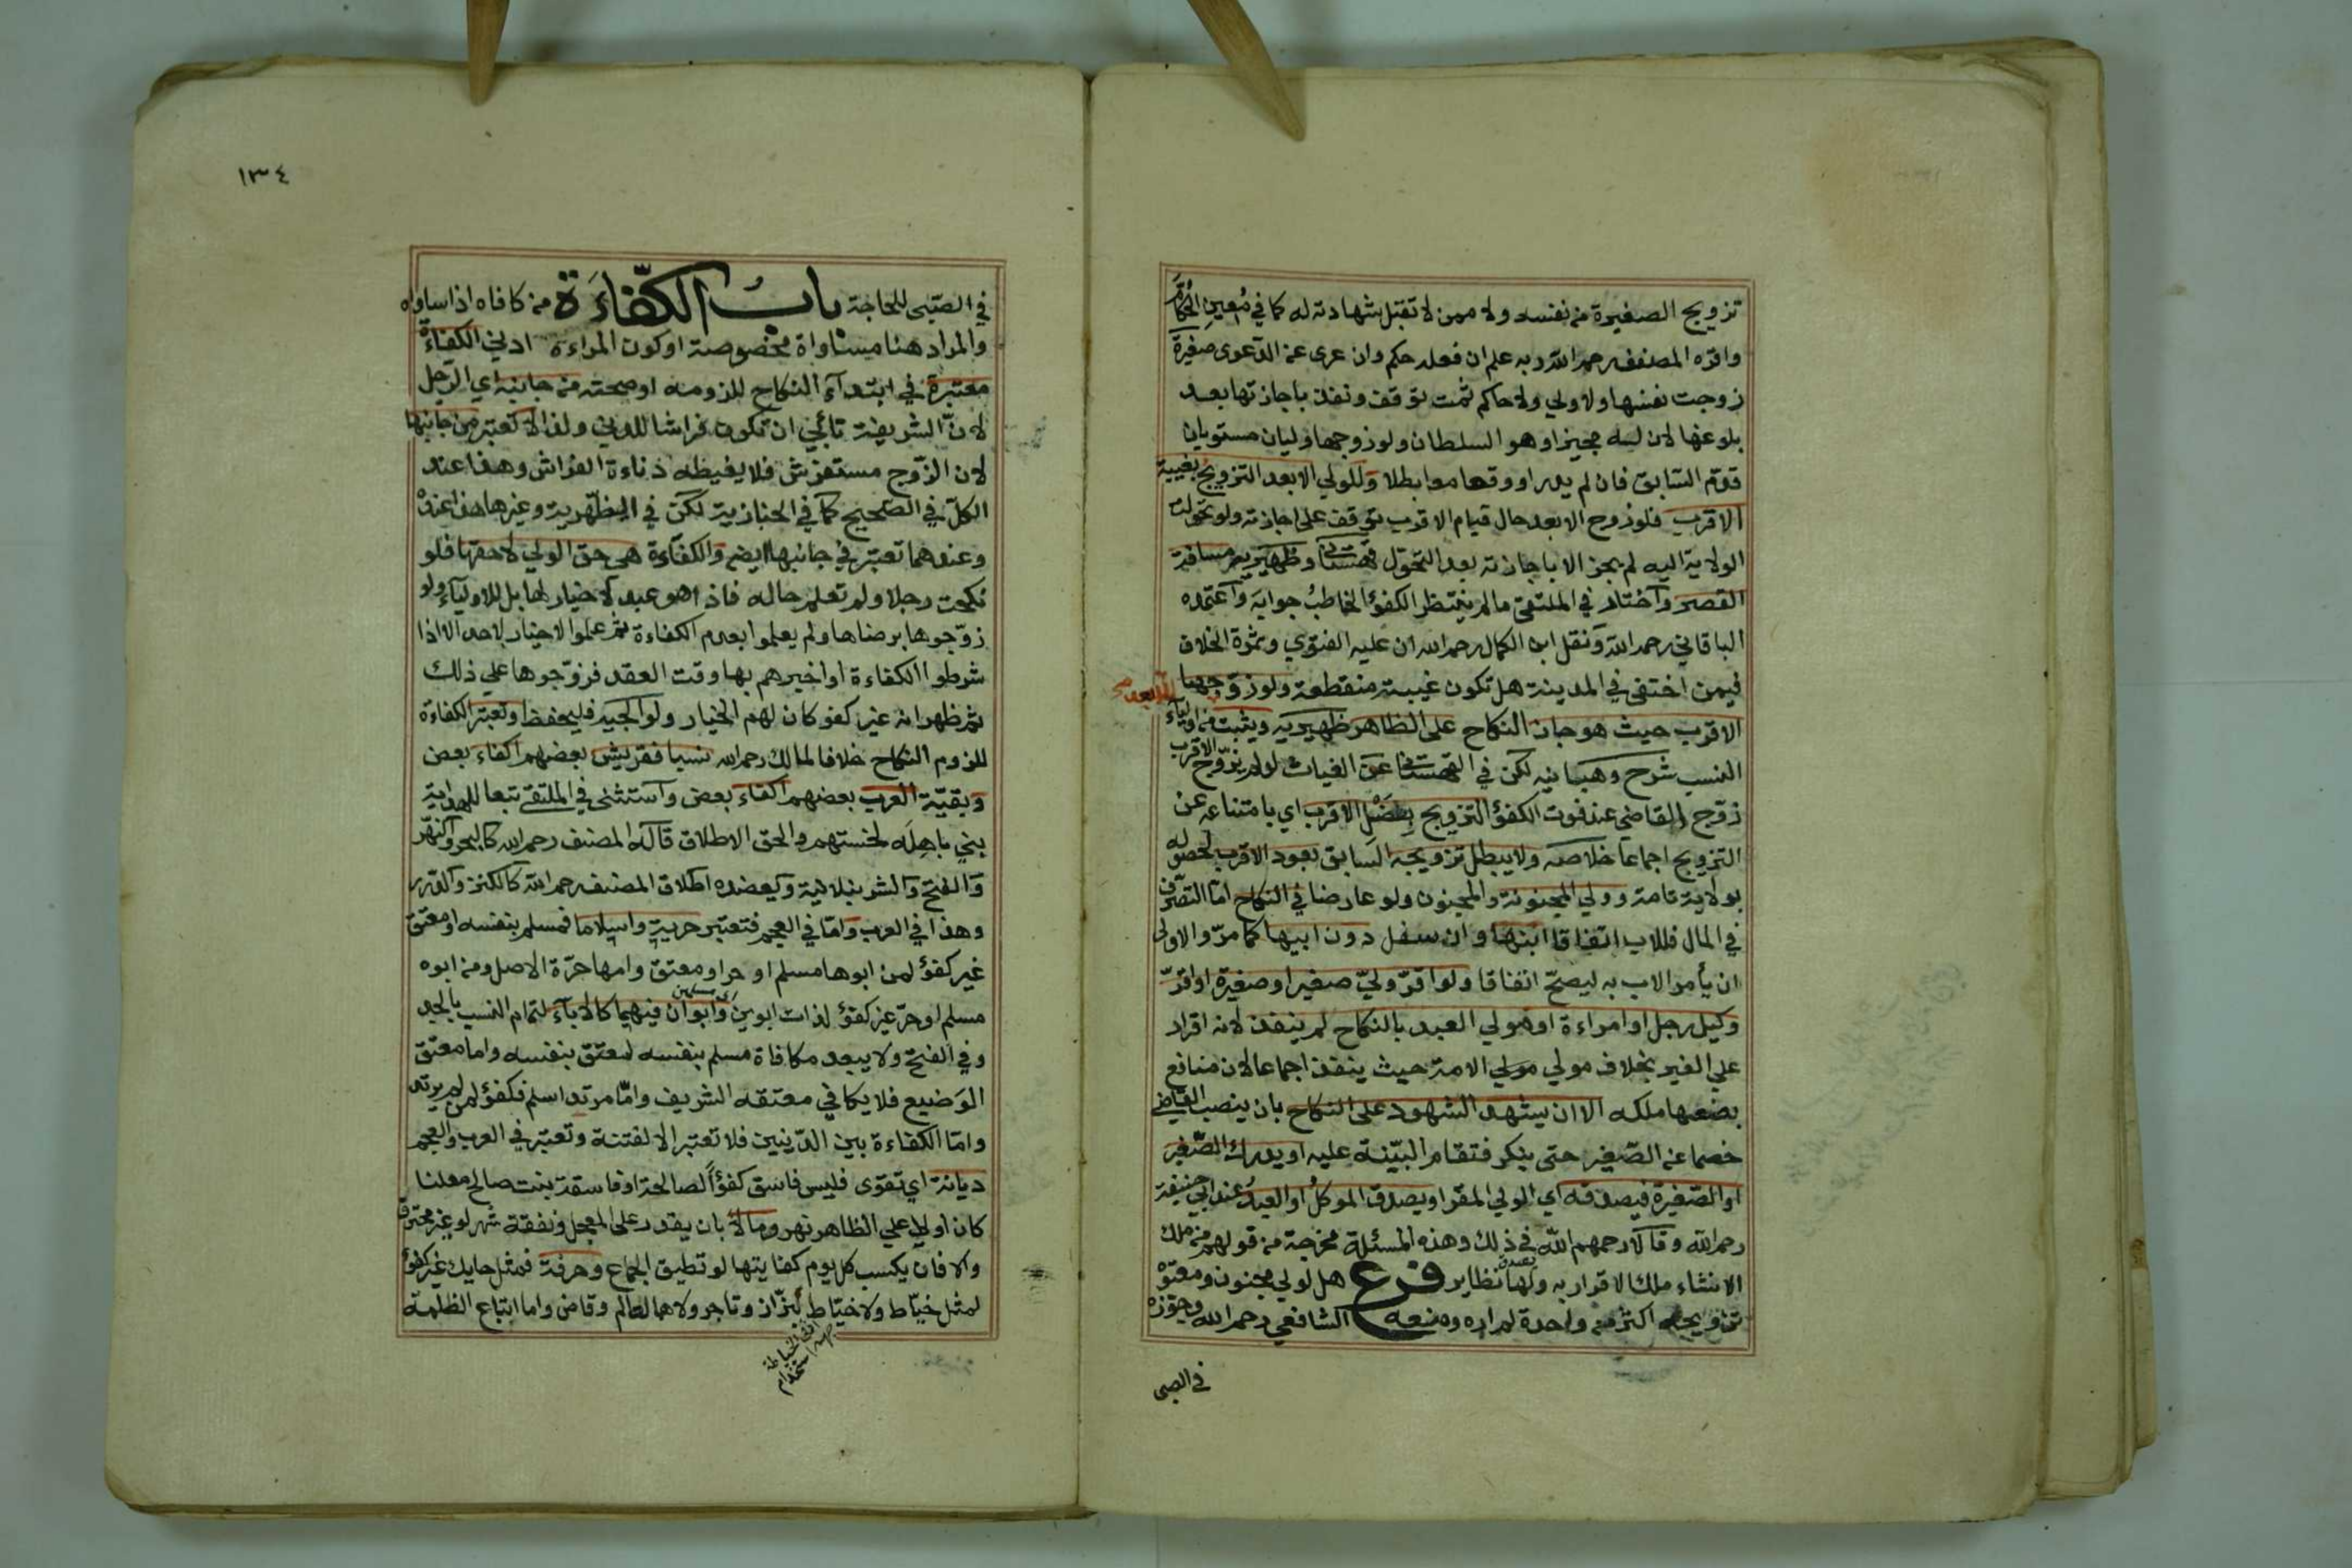 تزويج الصغيرة من نفسه ولا ممن لا تقبل شهادته له كما في معين الحكام
واقره المصنف رحمه الله وبه علم ان فعله حكم وان عرى عن الدعوى صغيرة
زوجت نفسها ولا ولي ولا حاكم ثمت توقف ونفذ باجازتها بعد
بلوغها لان له مجيزا وهو السلطان ولو زوجها وليان مستويان
قدم السابق فان لم يدر او وقعا معا بطلا وللولي الابعد التزويج بغيبة
الاقرب فلو زوج الابعد حال قيام الاقرب توقف على اجازته ولو تحولت
الولاية اليه لم يجز الا باجازته بعد التحول قهستاني وظهيرية مسافة
القصر واختار في الملتقى ما لم ينتظر الكفؤ الخاطب جوابه واعتمده
الباقاني رحمه الله ونقل ابن الكمال رحمه الله ان عليه الفتوي وثمرة الخلاف
فيمن اختفى في المدينة هل تكون غيبة منقطعة ولو زوجها
الاقرب حيث هو جاز النكاح على الظاهر ظهيريه ويثبت من اولياء
النسب شرح وهبانيه لكن في القهستاني عن الغياث لو لم يزوج الاقرب
زوج القاضي عند فوت الكفؤ التزويج بعضل الاقرب اي بامتناعه عن
التزويج اجماعا خلاصه ولا يبطل تزويجه السابق بعود الاقرب لحصوله
بولاية تامة وولي المجنونة والمجنون ولو عارضا في النكاح اما التصرف
في المال فللاب اتفاقا ابنها وان سفل دون ابيها كما مر والاولى
ان يأمر الاب به ليصح اتفاقا ولو اقر ولي صغير او صغيرة او اقر
وكيل رجل او امراءة او مولي العبد بالنكاح لم ينفذ لانه اقرار
علي الغير بخلاف مولي مولي الامة حيث ينفذ اجماعا لان منافع
بضعها ملكه الا ان يشهد الشهود على النكاح بان ينصب القاضي
خصما عن الصغير حتى ينكر فتقام البينة عليه او يدرك الصغير
او الصغيرة فيصدقه اي الولي المقر او يصدق الموكل او العبد عند ابي حنيفة
رحمه الله وقالا رحمهم الله في ذلك وهذه المسئلة مخرجة من قولهم من ملك
الانشاء ملك الاقرار به ولها نظاير فرع هل لولي مجنون ومعتوه
تزويجه اكثر من واحدة لم اره ومنعه الشافعي رحمه الله وجوزه
في الصبي
١٣٤
في الصبي للحاجة باب الكفاءة من كافاه اذا ساواه
والمراد هنا مساواة مخصوصة او كون المراءة ادني الكفاءة
معتبرة في ابتداء النكاح للزومه او صحته من جانبه اي الرجل
لان الشريفة تأبي ان تكون فراشا للدني ولذا لا تعتبر من جانبها
لان الزوج مستفرش فلا يغيظه دناءة الفراش وهذا عند
الكل في الصحيح كما في الخبازية لكن في الظهيرية وغيرها هذا عنده
وعندهما تعتبر في جانبها ايضا والكفاءة هي حق الولي لا حقها فلو
نكحت رجلا ولم تعلم حاله فاذا هو عبد لا خيار لها بل للاولياء ولو
زوجوها برضاها ولم يعلموا بعدم الكفاءة ثم علموا لا خيار لاحد الا اذا
شرطوا الكفاءة او اخبرهم بها وقت العقد فزوجوها علي ذلك
ثم ظهر انه غير كفو كان لهم الخيار ولوالجيه فليحفظ وتعتبر الكفاءة
للزوم النكاح خلافا لمالك رحمه الله نسبا فقريش بعضهم اكفاء بعض
وبقية العرب بعضهم اكفاء بعض واستثنى في الملتقى تبعا للهداية
بني باهلة لخستهم والحق الاطلاق قاله المصنف رحمه الله كالبحر والنهر
والفتح والشرنبلالية ويعضده اطلاق المصنف رحمه الله كالكنز والدرر
وهذا في العرب واما في العجم فتعتبر حرية واسلاما فمسلم بنفسه او معتق
غير كفؤ لمن ابوها مسلم او حر او معتق وامها حرة الاصل ومن ابوه
مسلم او حر غير كفؤ لذات ابوين وابوان فيهما كالاباء لتمام النسب بالجد
وفي الفتح ولا يبعد مكافاة مسلم بنفسه لمعتق بنفسه واما معتق
الوضيع فلا يكافي معتقه الشريف واما مرتد اسلم فكفؤ لمن لم يرتد
واما الكفاءة بين الذميين فلا تعتبر الا لفتنة وتعتبر في العرب والعجم
ديانة اي تقوى فليس فاسق كفؤا لصالحة او فاسقة بنت صالح معلنا
كان اولا علي الظاهر نهر ومالا بان يقدر على المعجل ونفقة شهر لو غير محترف
والا فان يكسب كل يوم كفايتها لو تطيق الجماع وحرفة فمثل حايك غير كفؤ
لمثل خياط ولا خياط لبزاز وتاجر ولا هما لعالم وقاض واما اتباع الظلمة